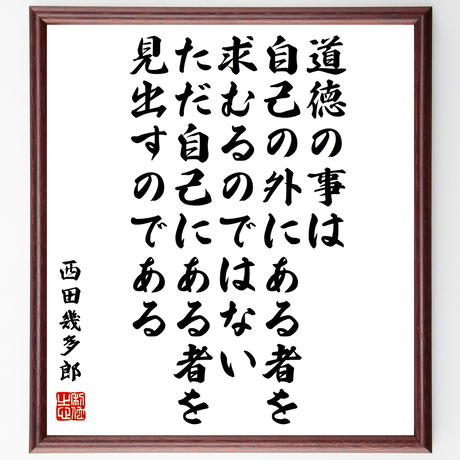 道徳の事は
自己の外にある者を
求むるのではない
ただ自己にある者を
見出すのである
西田幾多郎